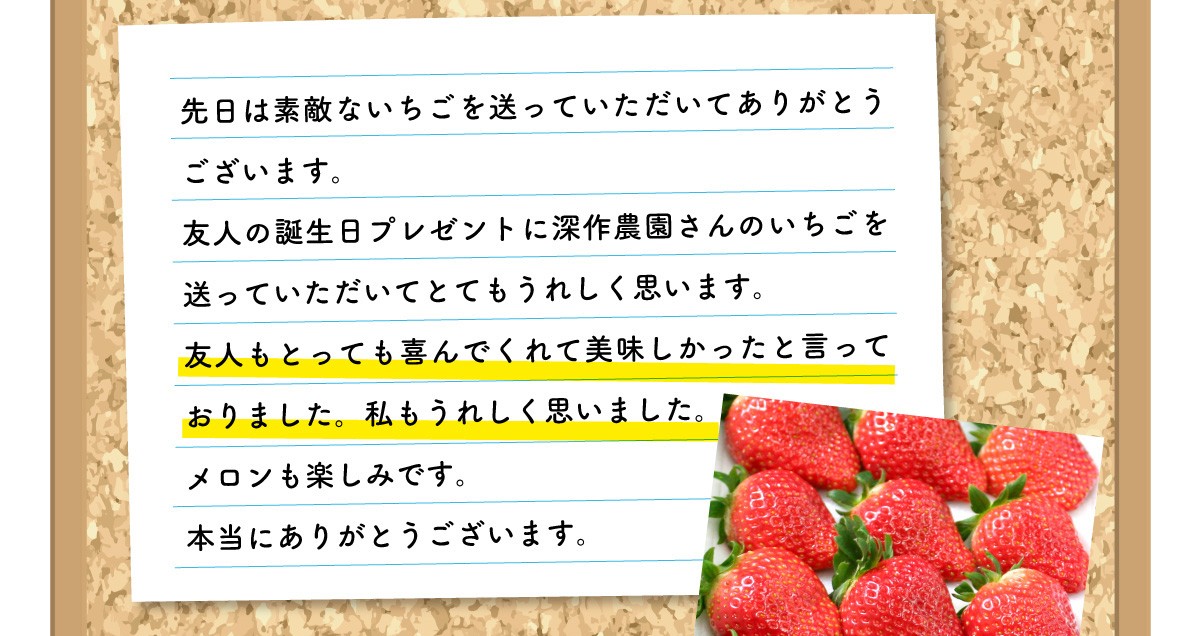 先日は素敵ないちごを送っていただいてありがとう
ございます。
友人の誕生日プレゼントに深作農園さんのいちごを
送っていただいてとてもうれしく思います。
友人もとっても喜んでくれて美味しかったと言って
おりました。私もうれしく思いました。
メロンも楽しみです。
本当にありがとうございます。